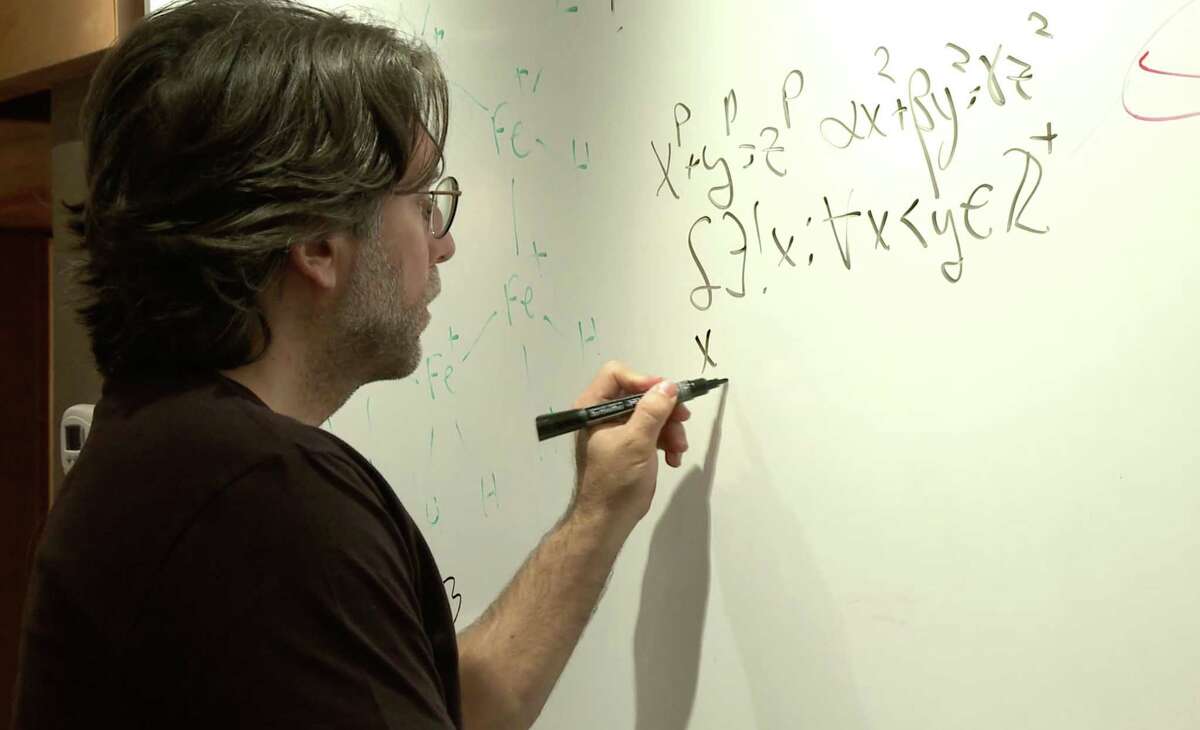 xᵖ+yᵖ=zᵖ αx²+βy²=γz²
∃!x:∀x<y∈ℝ⁺
x
Fe H
+
Fe H
Fe⁺
H
3